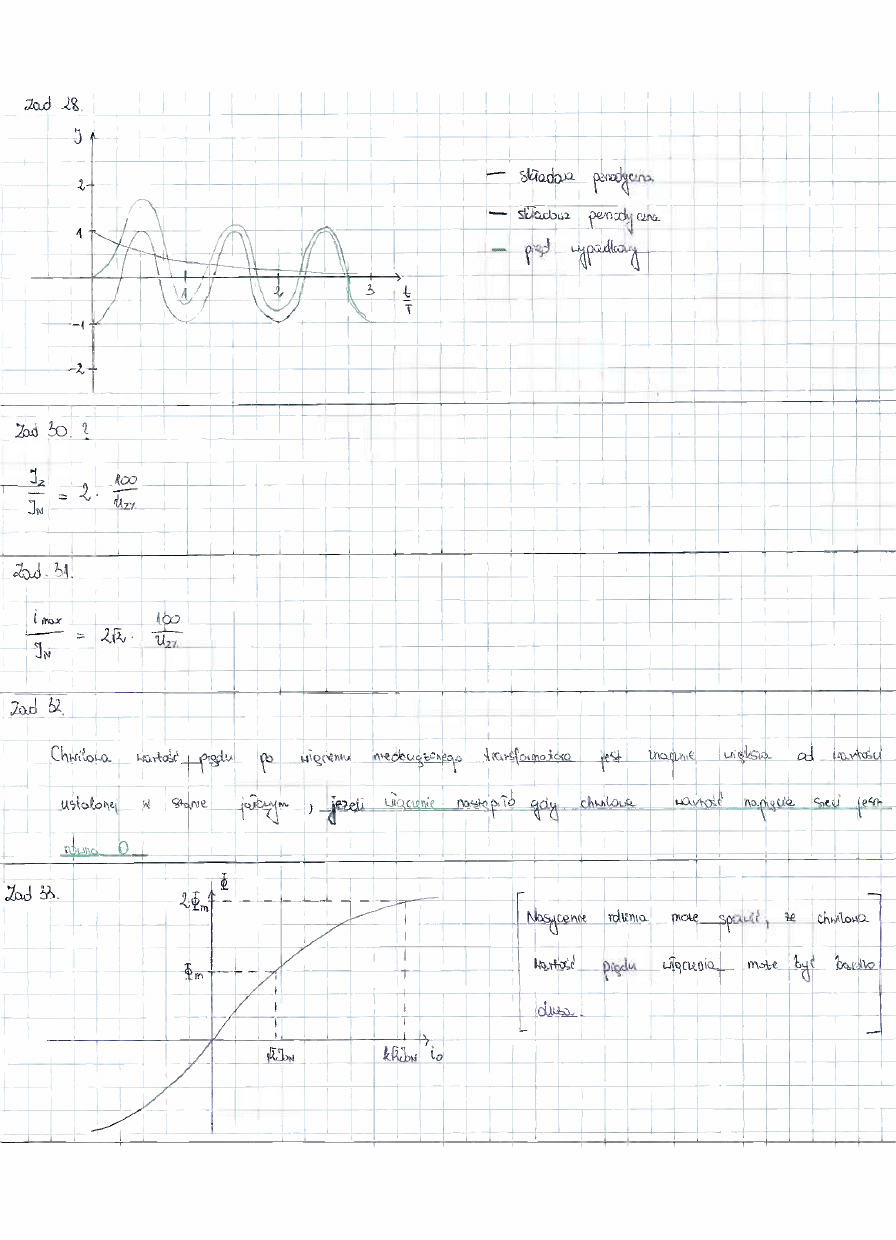 Zad 28.
J
2
1
-1
-2
1 2 3 t/T
składowa periodyczna
składowa periodyczna
prąd wypadkowy
Zad 30. ?
J_z/J_N = 2 · 100/u_z%
Zad. 31.
i_max/J_N = 2√2 · 100/u_z%
Zad 32.
Chwilowa wartość prądu po włączeniu nieobciążonego transformatora jest znacznie większa od wartości
ustalonej w stanie jałowym, jeżeli włączenie nastąpiło gdy chwilowa wartość napięcia sieci jest
równa 0
Zad 33.
Φ
2Φ_m
Φ_m
i_0
Nasycenie rdzenia może sprawić, że chwilowa
wartość prądu włączenia może być bardzo
duża.